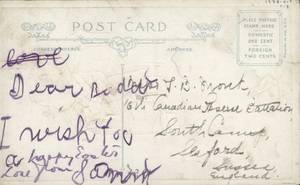 POST CARD
CORRESPONDENCE
ADDRESS
PLACE POSTAGE
STAMP HERE
DOMESTIC
ONE CENT
FOREIGN
TWO CENTS
love
Dear Daddy
I wish you
a happy Easter
Love from
15th Canadian Reserve Battalion
South Camp
Seaford
Sussex
England